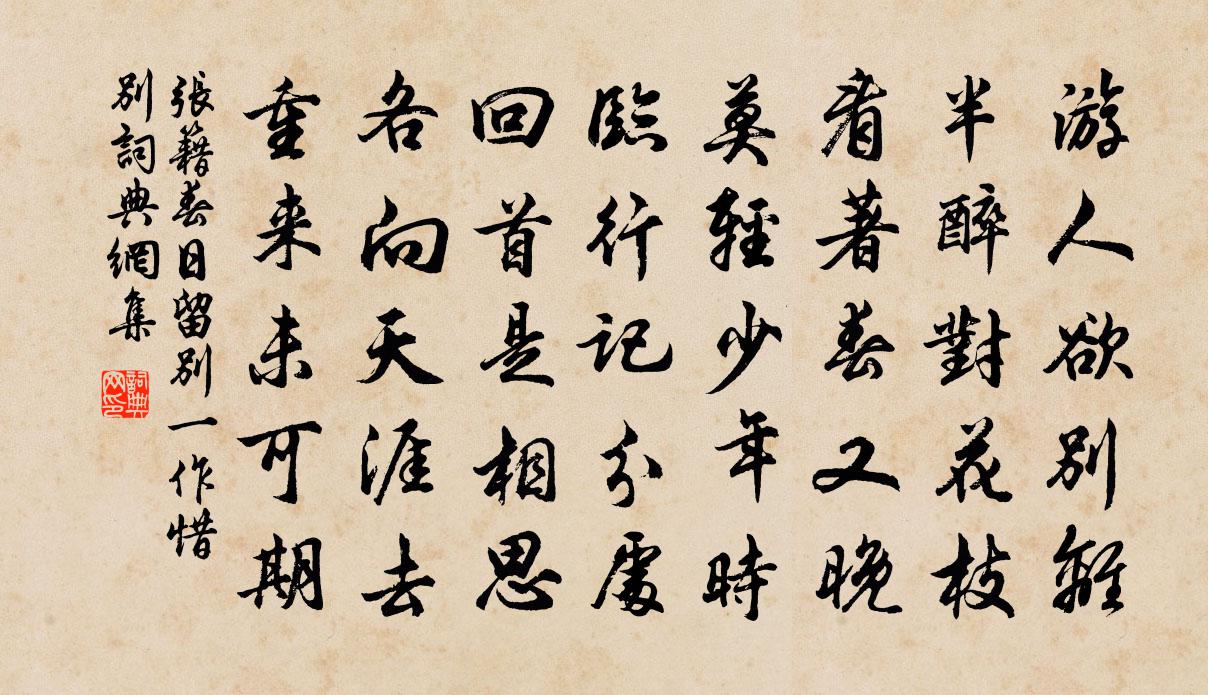 游人欲別離
半醉對花枝
看著春又晚
莫輕少年時
臨行記分處
回首是相思
各向天涯去
重来未可期
張籍春日留别一作惜
别詞典網集
詞典
网印